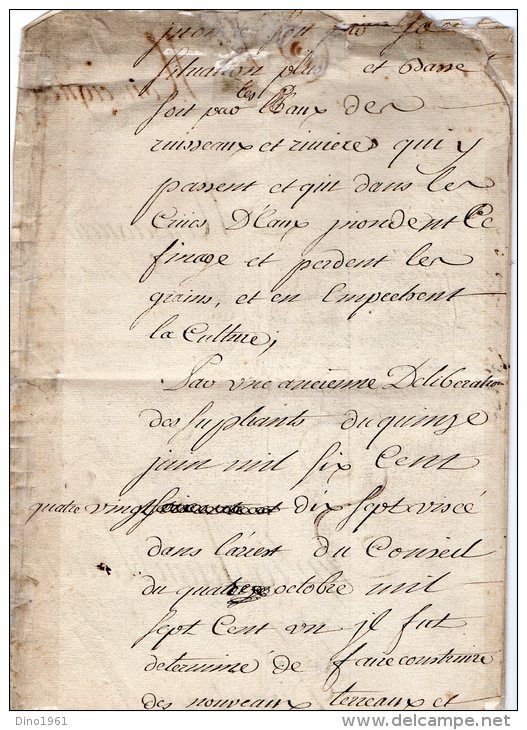 situation plus et basse
soit par les Eaux des
ruisseaux et rivieres qui y
passent et qui dans les
Crües D'Eaux jnondent Le
finage et perdent les
grains, et en Empechent
la Culture;
Par une ancienne Deliberation
des supliants du quinze
juin mil six Cent
quatre vingt dix sept viscé
dans l'arest du Conseil
du quatre octobre mil
sept Cent un jl fut
determiné de faire construire
des nouveaux terreaux et
Dino1961
delcampe.net